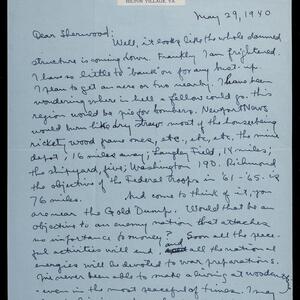 HILTON VILLAGE, VA.
May 29, 1940
Dear Sherwood:
Well, it looks like the whole damned
structure is coming down. Frankly I am frightened.
I have so little to bank on for any bust-up.
I plan to get an acre or two nearby. I have been
wondering where in hell a fellow could go. This
region would be pie for bombers. Newport News
would burn like dry straw. most of the houses being
rickety wood frame ones, etc, etc, etc, the mine
depot, 16 miles away; Langley Field, 14 miles;
the shipyard, five; Washington 190. Richmond
the objective of the Federal troops in '61-'65 is
76 miles.
And come to think of it, you
are near the Gold Dump. Would that be an
objective to an enemy nation that attaches
no importance to money? Soon all the peace-
ful activities will end and all the national
energies will be devoted to war preparations.
I've never been able to make a living at wooden
- even in the most peaceful of times. I may